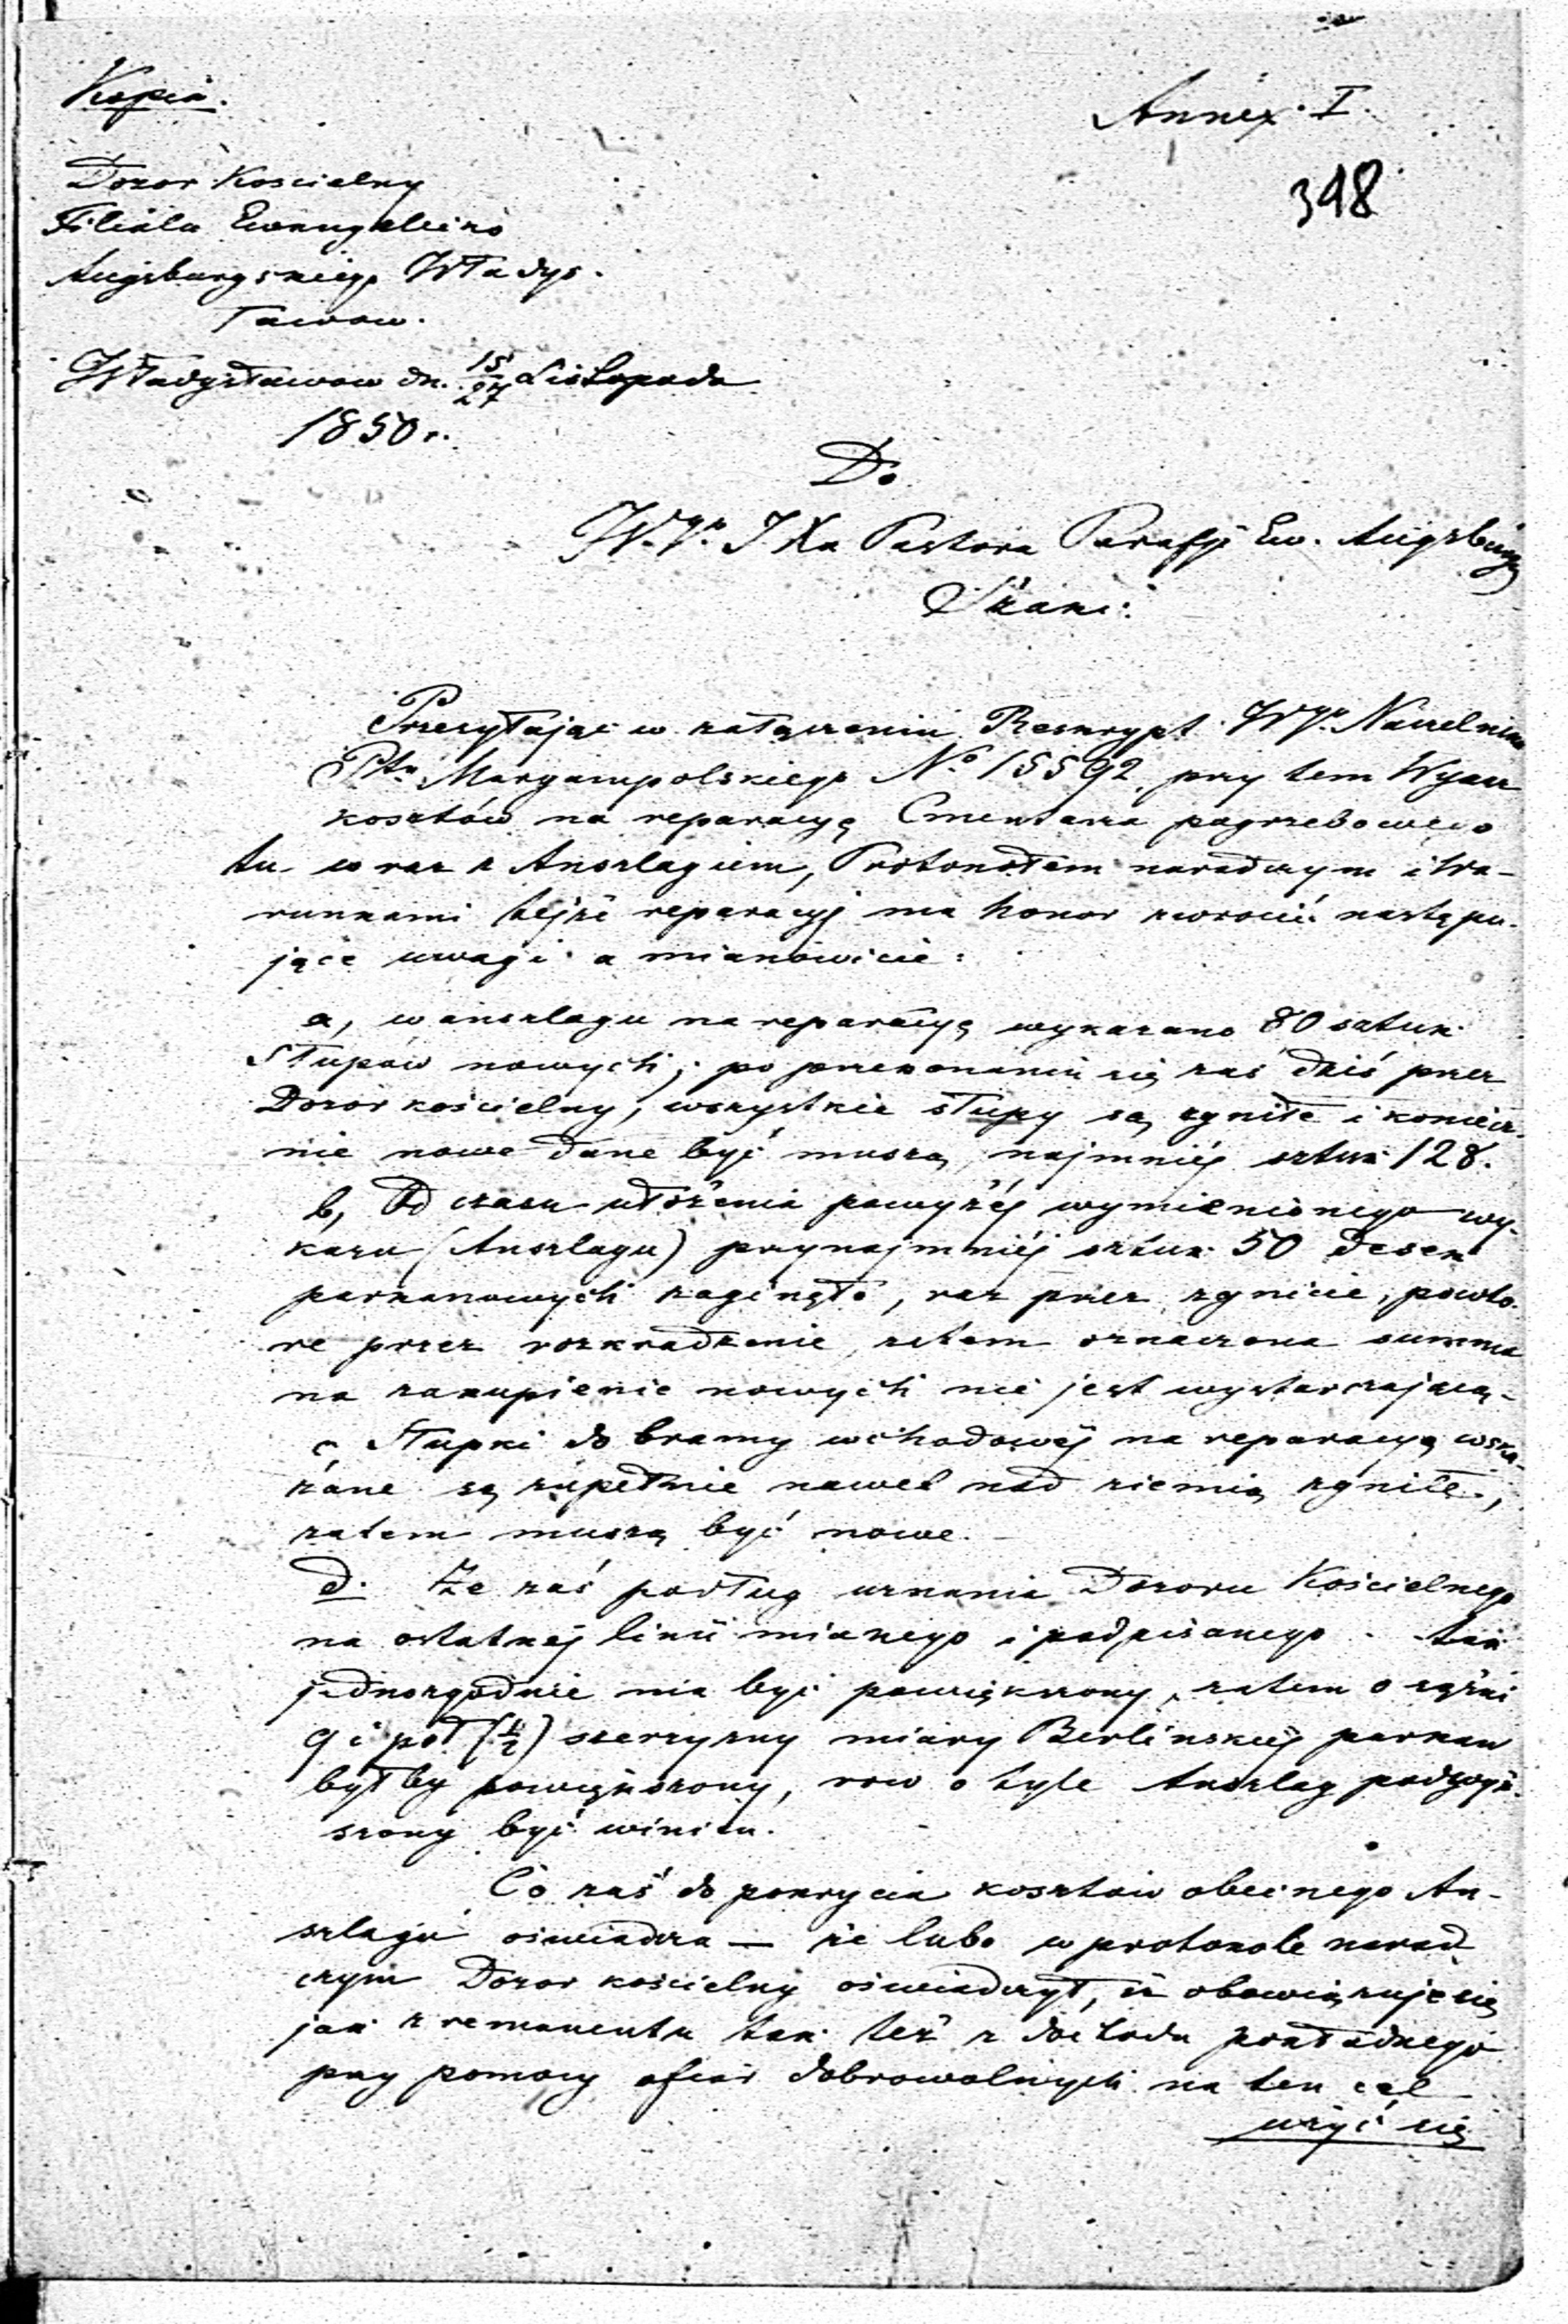 Kopia.
Annex. I.
398
Dozor Kościelny
Filiału Ewangelicko
Augsburgskiego Władys-
ławow.
Władysławow dn. 15/27 Listopada
1850 r.
Do
W. JXa Pastora Parafji Ew. Augsburg
Szaki.
Przesyłając w załączeniu Reskrypt W Naczelnika
Ptu Maryampolskiego No 15592 przy tem Wykaz
kosztów na reparacyą Cmentarza pogrzebowego
tu wraz z Anszlagiem, Protokołem naradczym i Wa-
runkami tejże reparacyj ma honor zwrócić następu-
jące uwagi a mianowicie:
a, w anszlagu na reparacyą wykazano 80 sztuk
Słupow nowych; po przekonaniu się zaś dziś przez
Dozor kościelny, wszystkie słupy są zgniłe i koniecz-
nie nowe dane być muszą, najmniéj sztuk 128.
b, Od czasu ułożenia powyżéj wymienionego wy-
kazu (Anszlagu) przynajmniéj sztuk 50 desek
parkanowych zaginęło, raz przez zgnicie, powto-
re przez rozkradzenie, zatem oznaczona summa
na zakupienie nowych nie jest wystarczającą-
c Słupki do bramy wchodowéj na reparacyą wska-
zane są zupełnie nawet nad ziemią zgniłe,
zatem muszą być nowe.
d. Że zaś podług uznania Dozoru Kościelnego
na ostatnéj linii mianego i podpisanego tak
jednozgodnie ma być powiększony, zatem o sążni
9 i pół (½) szerzyzny miary Berlinskiéj parkan
byłby powiększony, row o tyle Anszlag podwyż-
szony być winien.
Co zaś do pokrycia kosztow obecnego An-
szlagu oświadcza — że lubo w protokole narad
czym Dozor kościelny oświadczył, iż obowiązuje się
jak z remanentu tak też z dochodu pokładnego
przy pomocy ofiar dobrowolnych na ten cel
użyć się